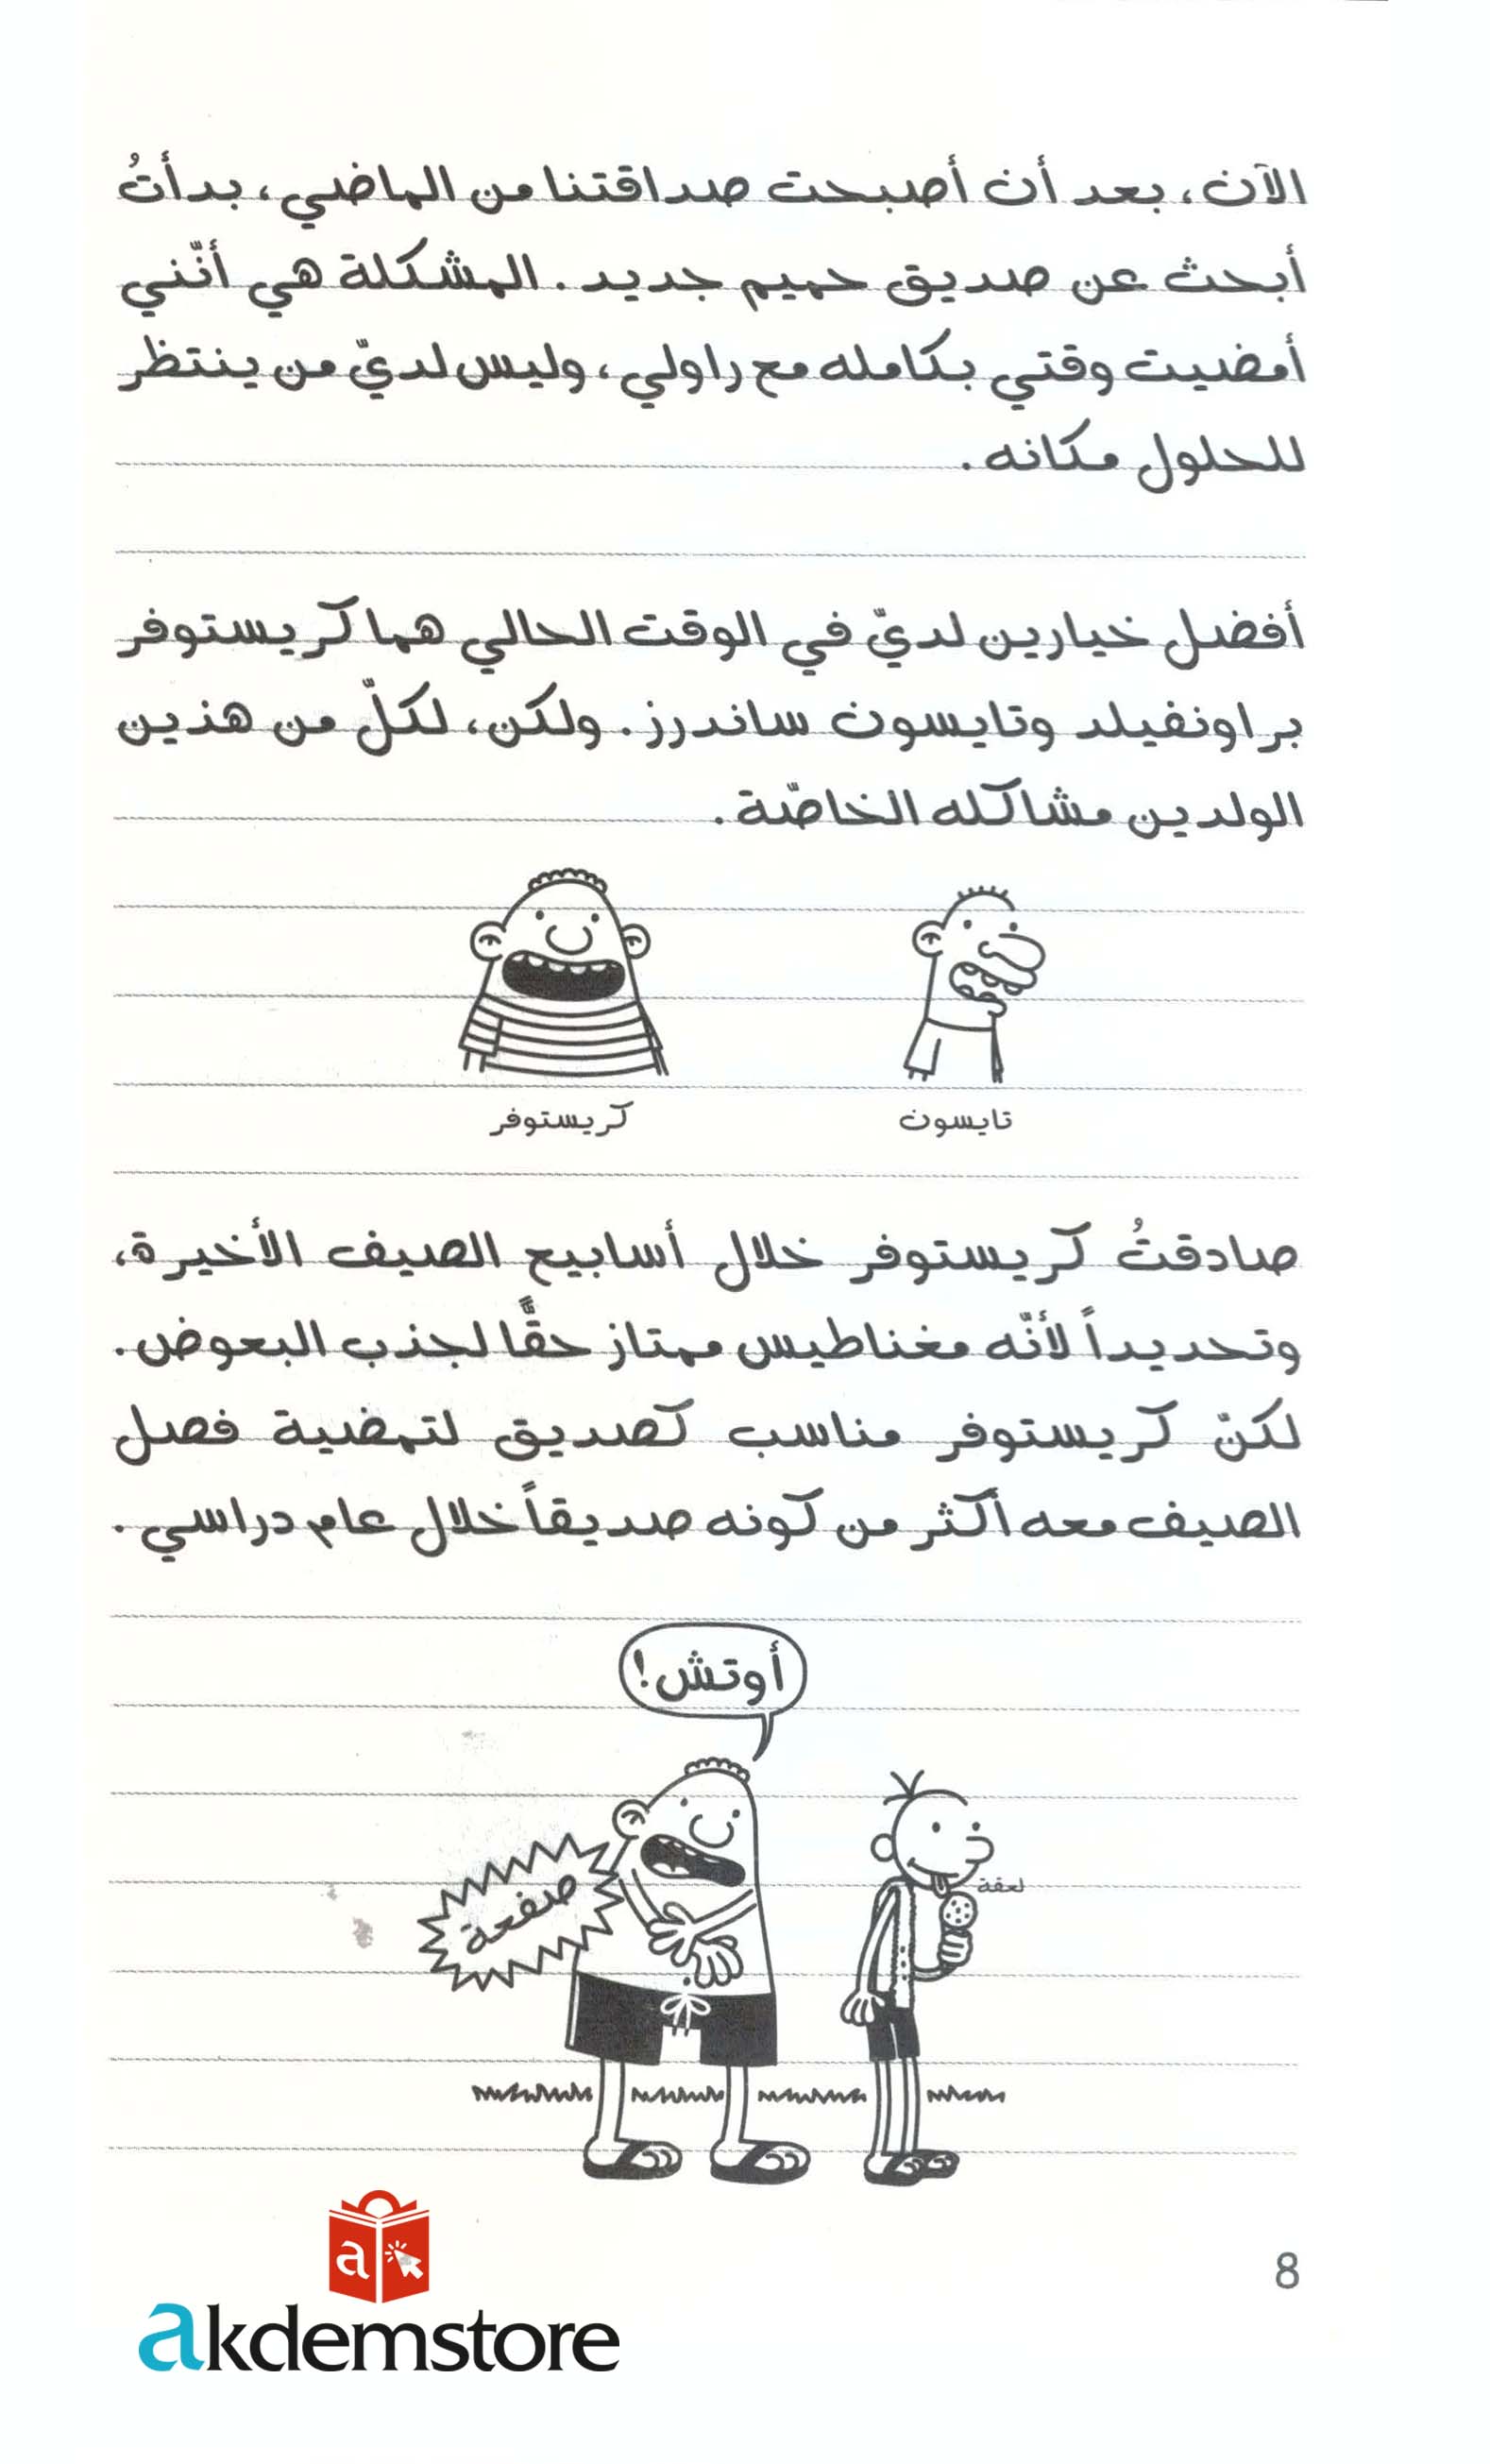 الآن، بعد أن أصبحت صداقتنا من الماضي، بدأتُ
أبحث عن صديق حميم جديد. المشكلة هي أنّني
أمضيت وقتي بكامله مع راولي، وليس لديّ من ينتظر
للحلول مكانه.
أفضل خيارين لديّ في الوقت الحالي هما كريستوفر
براونفيلد وتايسون ساندرز. ولكن، لكلّ من هذين
الولدين مشاكله الخاصّة.
تايسون
كريستوفر
صادقتُ كريستوفر خلال أسابيع الصيف الأخيرة،
وتحديداً لأنّه مغناطيس ممتاز حقًّا لجذب البعوض.
لكنّ كريستوفر مناسب كصديق لتمضية فصل
الصيف معه أكثر من كونه صديقاً خلال عام دراسي.
أوتش!
لعقة
صفعة
8
a
akdemstore